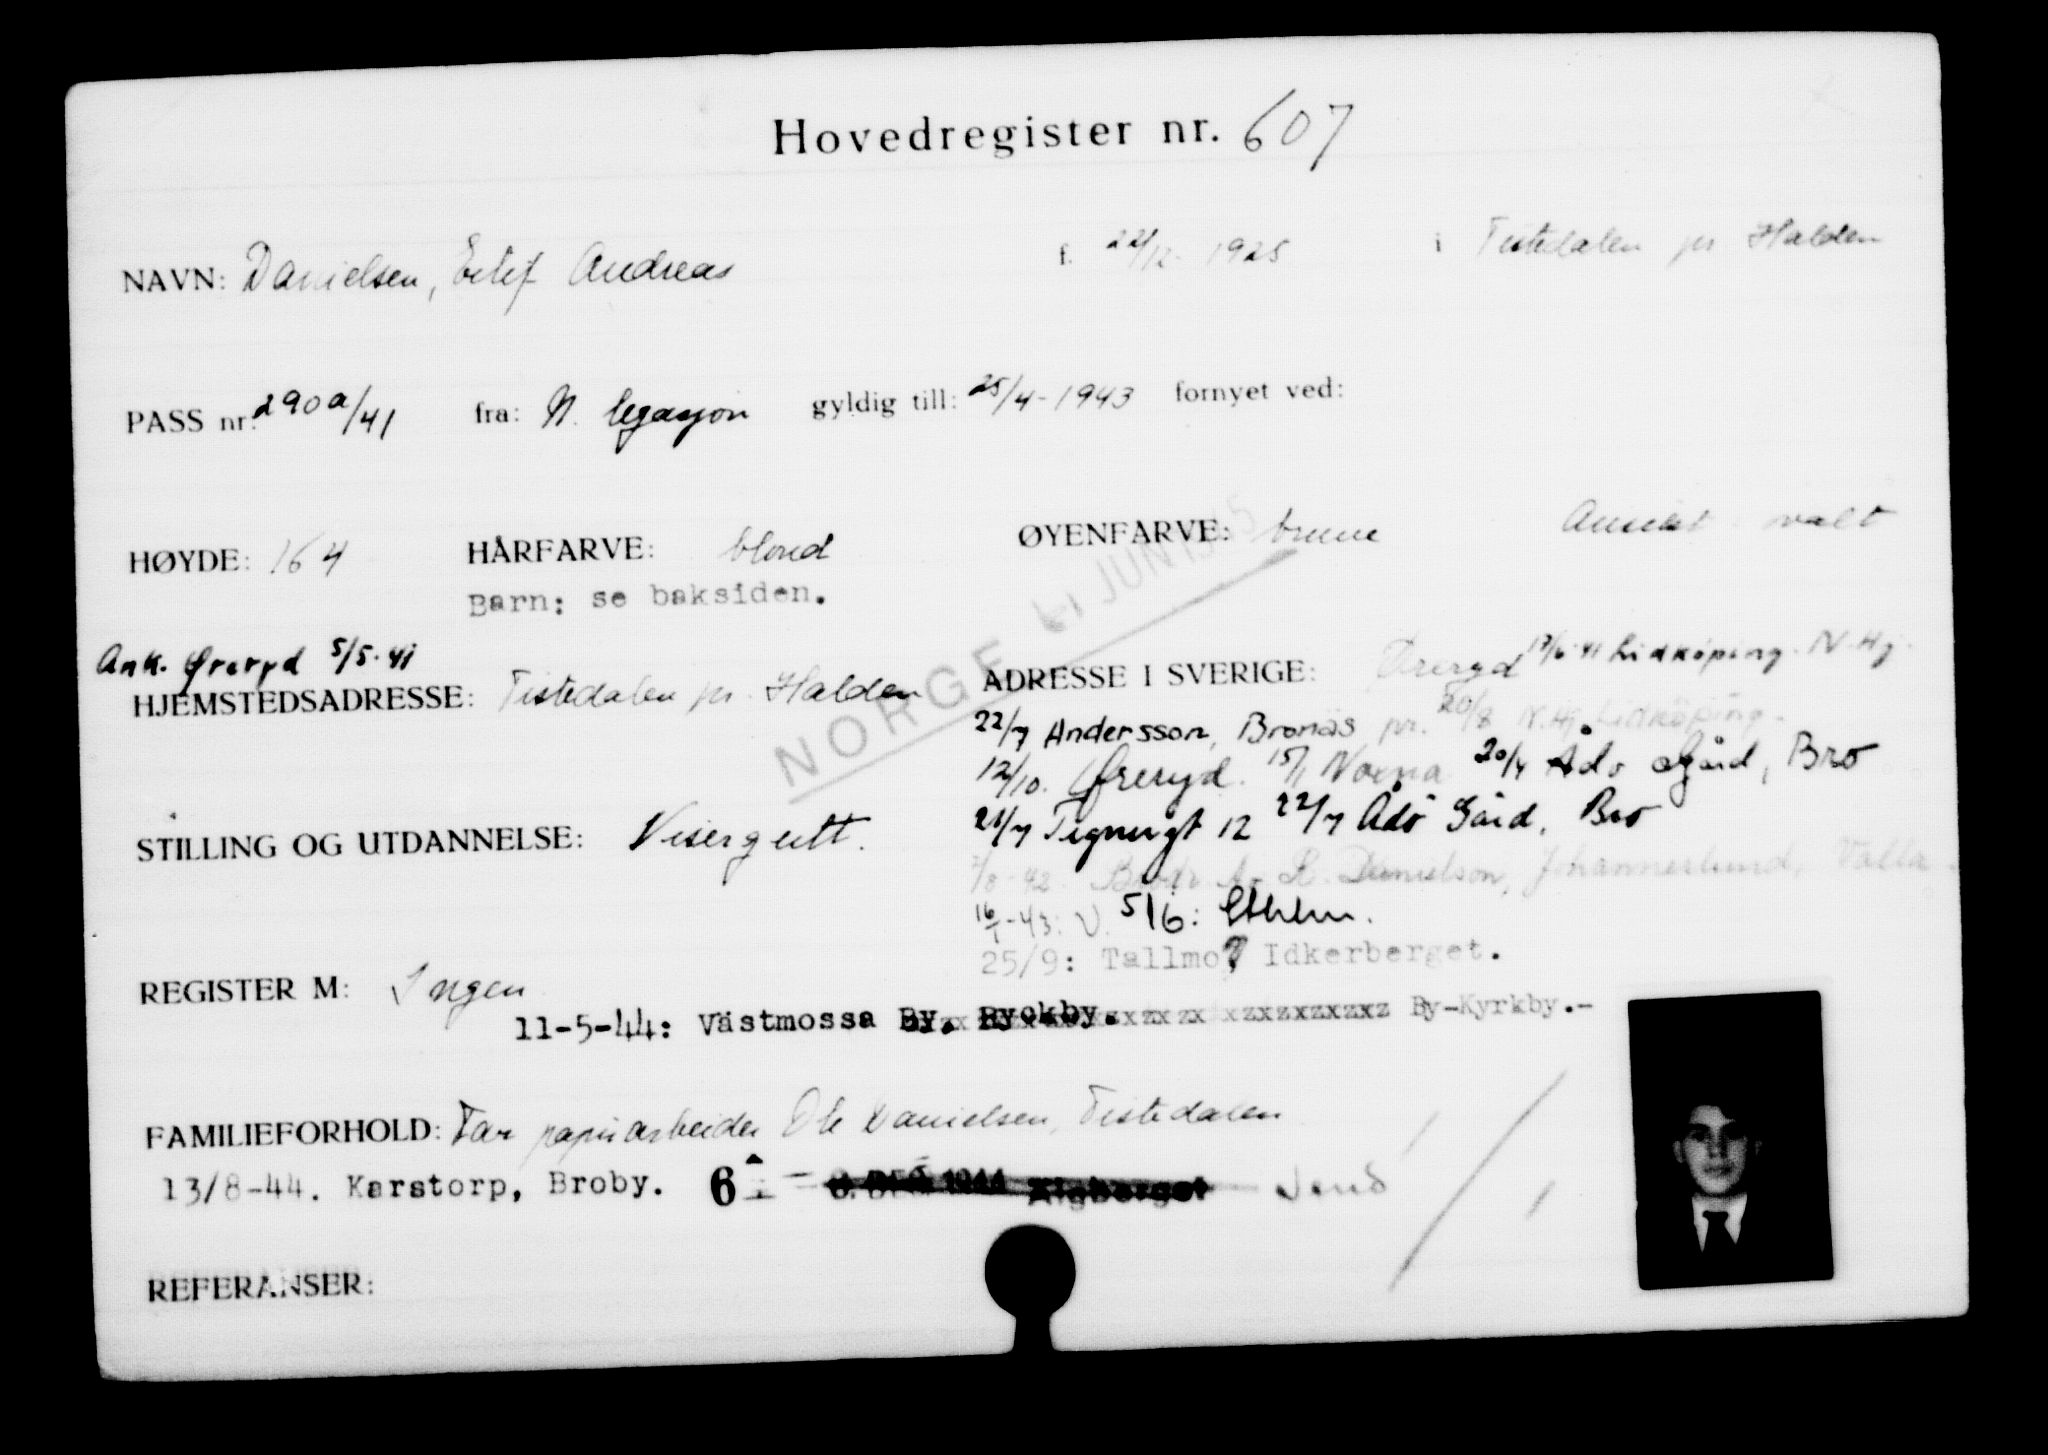 Hovedregister nr. 607
NAVN: Danielsen, Eilif Andreas f. 22/12 1925 i Tistedalen pr Halden
PASS nr. 290a/41 fra: N. legasjon gyldig till: 25/4-1943 fornyet ved:
HØYDE: 164 HÅRFARVE: blond ØYENFARVE: brune Ansikt ovalt
Barn: se baksiden.
NORGE JUNI 1945
Ank. Øreryd 5/5-41
HJEMSTEDSADRESSE: Tistedalen pr. Halden ADRESSE I SVERIGE: Øreryd 17/6-41 Lidköping. N.Hj.
22/7 Andersson, Bronäs pr. 20/8 N.Hj. Lidköping.
12/10. Øreryd. 15/1 Norna 20/4 Ådö Gård, Bro
STILLING OG UTDANNELSE: Visergutt. 21/7 Tegnergt 12 22/7 Ådö Gård, Bro
7/8-42. R. Danielson, Johannerlund, Valla.
16/1-43: V. 5/6: Sthlm.
25/9: Tallmo, Idkerberget.
REGISTER M: Ingen
11-5-44: Västmossa By. Byckby. By-Kyrkby.-
FAMILIEFORHOLD: Far papirarbeider Ole Danielsen, Tistedalen
13/8-44. Karstorp, Broby. 6 DES 1944 Älgberget
REFERANSER: